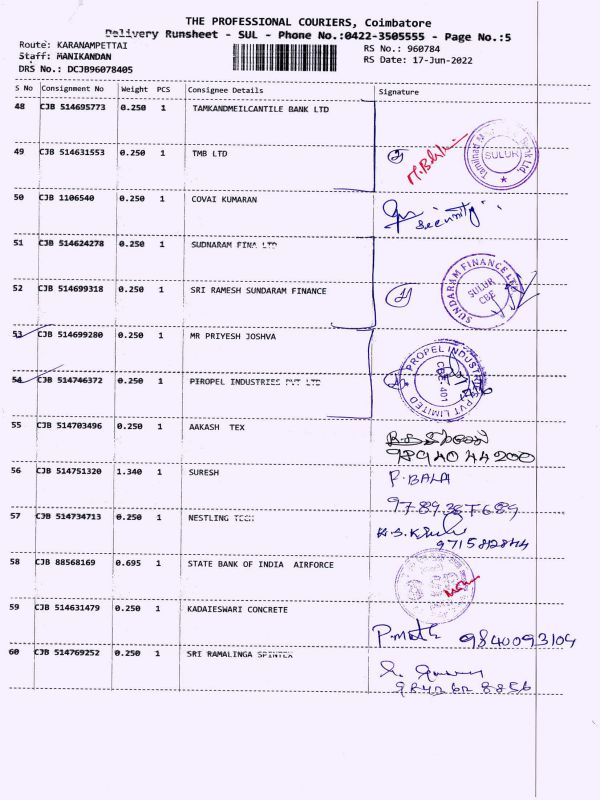 THE PROFESSIONAL COURIERS, Coimbatore
Delivery Runsheet - SUL - Phone No.:0422-3505555 - Page No.:5
Route: KARANAMPETTAI RS No.: 960784
Staff: MANIKANDAN RS Date: 17-Jun-2022
DRS No.: DCJB96078405
S No Consignment No Weight PCS Consignee Details Signature
48 CJB 514695773 0.250 1 TAMKANDMEILCANTILE BANK LTD
49 CJB 514631553 0.250 1 TMB LTD
SULUR
50 CJB 1106540 0.250 1 COVAI KUMARAN
Security
51 CJB 514624278 0.250 1 SUDNARAM FINA LTD
52 CJB 514699318 0.250 1 SRI RAMESH SUNDARAM FINANCE
SUNDARAM FINANCE LTD
SULUR
CBE
53 CJB 514699280 0.250 1 MR PRIYESH JOSHVA
54 CJB 514746372 0.250 1 PIROPEL INDUSTRIES PVT LTD
PROPEL INDUSTRIES PVT LIMITED
CBE-401
55 CJB 514703496 0.250 1 AAKASH TEX
9894044200
56 CJB 514751320 1.340 1 SURESH P. BALA
57 CJB 514734713 0.250 1 NESTLING TECH
58 CJB 88568169 0.695 1 STATE BANK OF INDIA AIRFORCE
59 CJB 514631479 0.250 1 KADAIESWARI CONCRETE
9840093104
60 CJB 514769252 0.250 1 SRI RAMALINGA SPINTEX